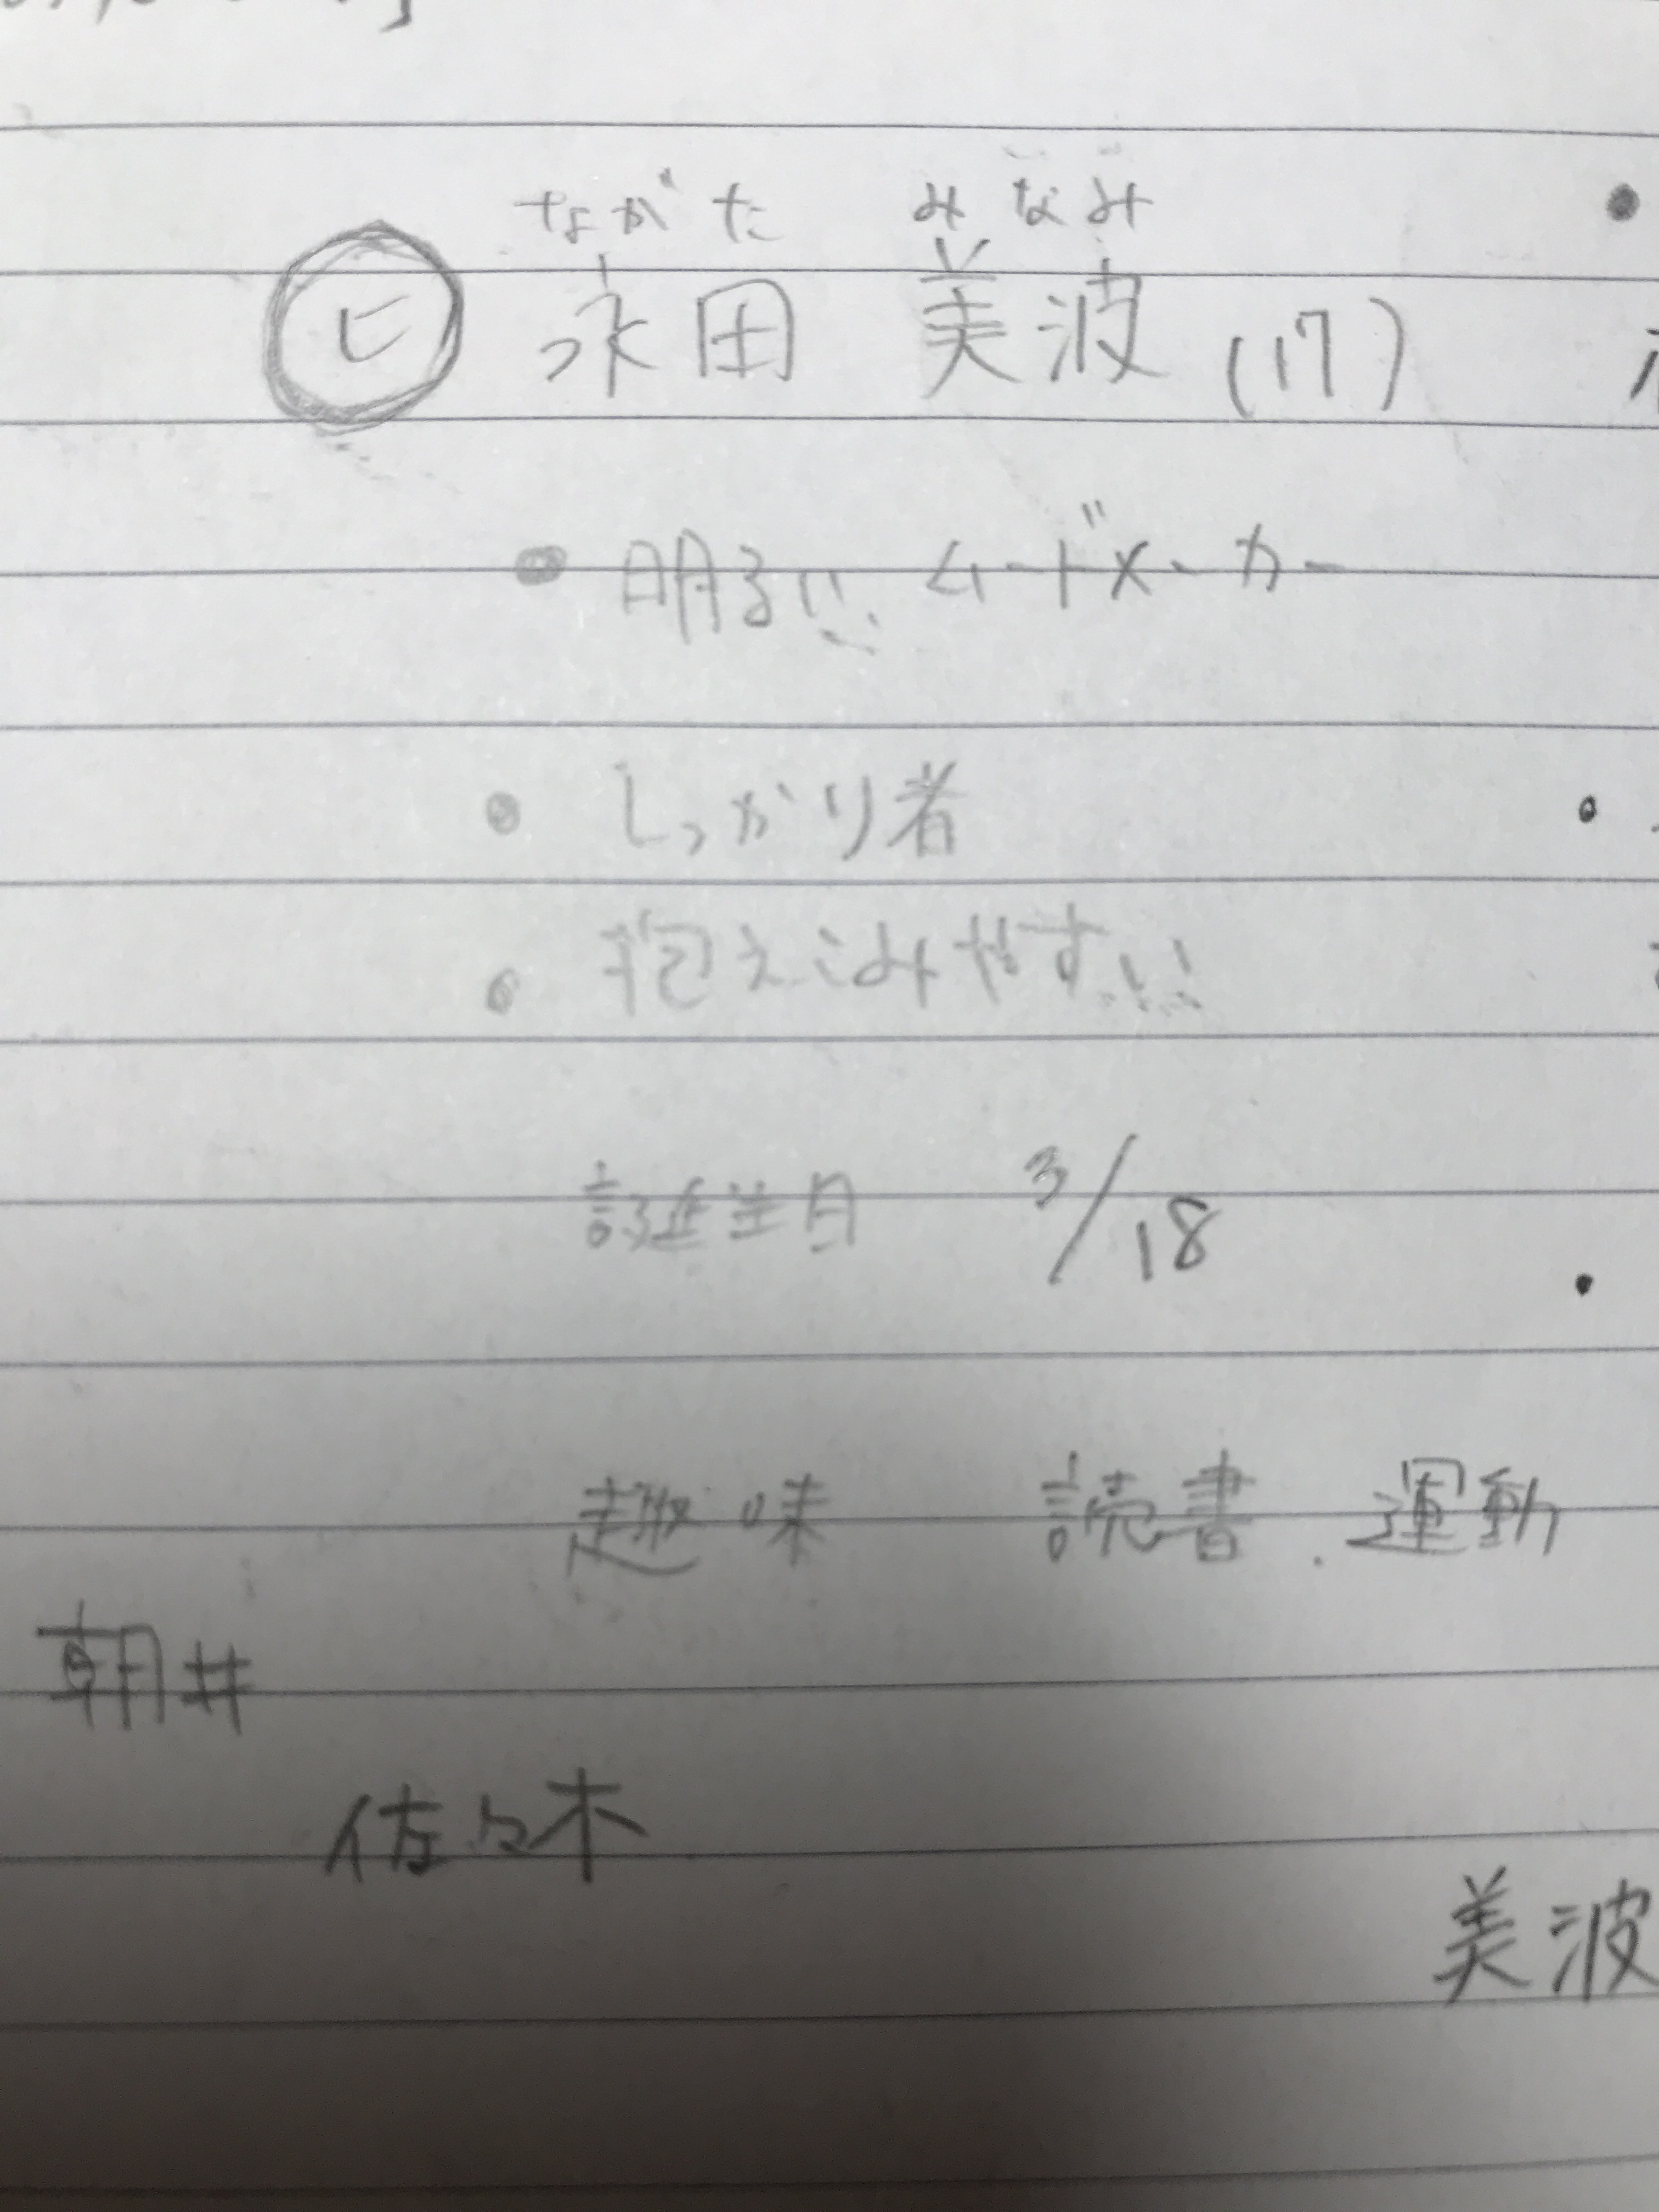 ながた みなみ
ヒ 永田 美波 (17)
明るい ムードメーカー
しっかり者
抱えこみやすい
誕生日 3/18
趣味 読書、運動
朝井
佐々木
美波